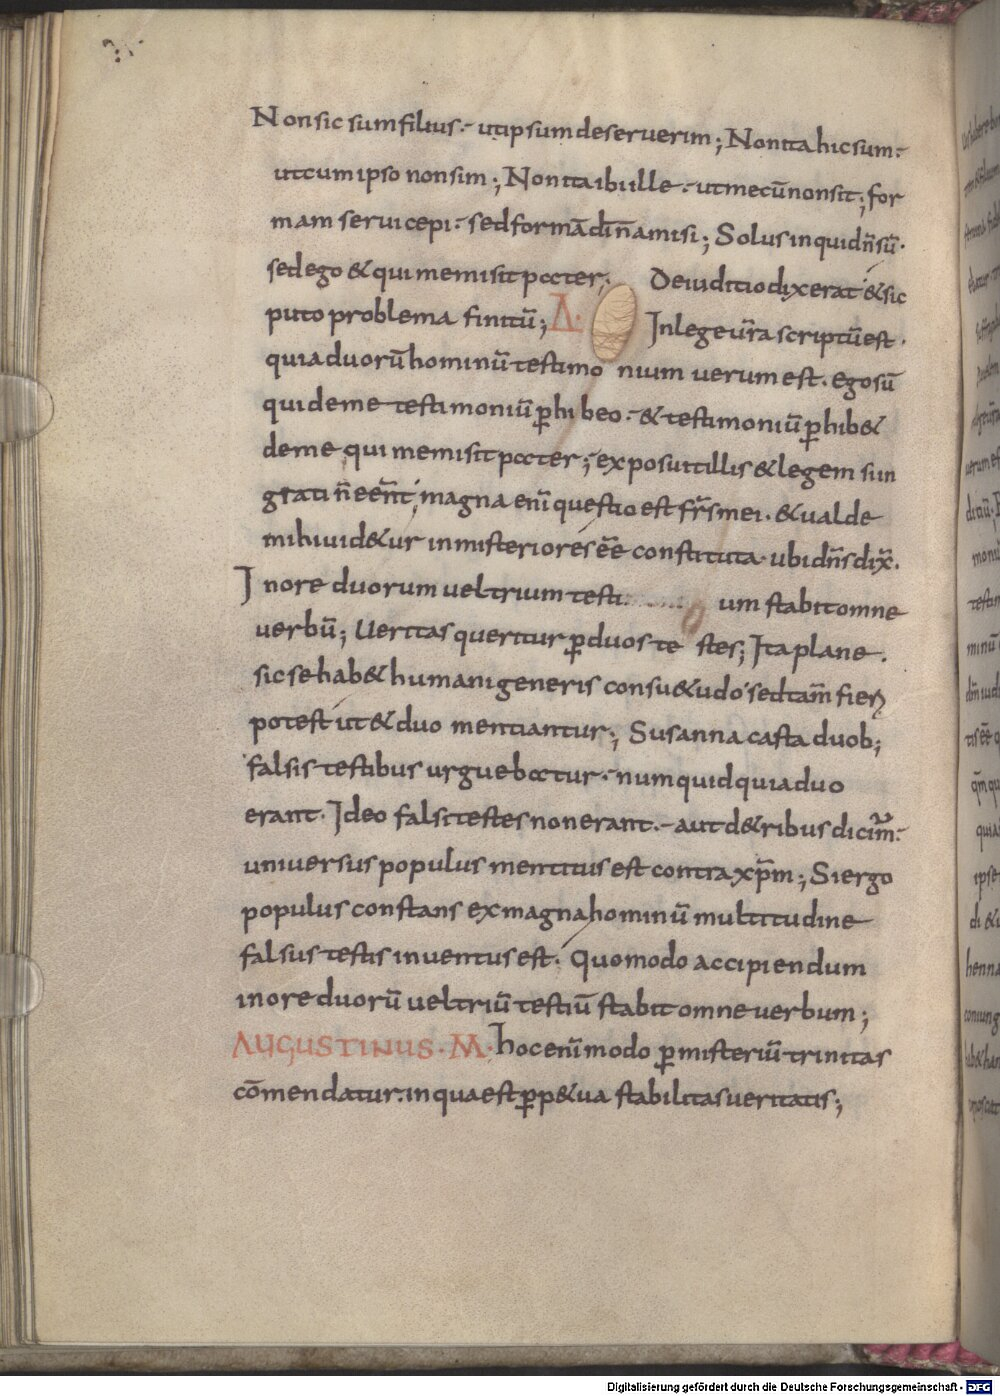 Non sic sum filius · ut ipsum deseruerim; Non ita hic sum ·
ut cum ipso non sim; Non ita ibi ille · ut mecū non sit; for
mam servi cepi · sed formā dī n̄ amisi; Solus inquid n̄ sū ·
sed ego & qui me misit pater; De iuditio dixerat & sic
puto problema finitū; A· In lege ur̄a scriptū est ·
quia duorū hominū testimo nium verum est · ego sū
qui de me testimoniū ꝑhibeo · & testimoniū ꝑhib&
de me qui me misit pater; exposuit illis & legem sun
grati n̄ eēnt; magna eni questio est fr̄s mei · & ualde
mihi uid&ur in misterio res eē constituta · ubi dn̄s dix̄ ·
In ore duorum uel trium testi um stabit omne
verbū; Ueritas queritur ꝑ duos te stes; Ita plane ·
sic se hab& humani generis consu&udo sed tam̄ fieri
potest ut & duo mentiantur; Susanna casta duob;
falsis testibus urguebatur · numquid quia duo
erant · Ideo falsi testes non erant · aut de &ribus dicim̄ ·
universus populus mentitus est contra xp̄m; Si ergo
populus constans ex magna hominū multitudine
falsus testis inventus est · Quomodo accipiendum
in ore duorū uel triū testiū stabit omne verbum;
AUGUSTINUS · M · hoc eni modo ꝑ misteriū trinitas
cōmendatur · in qua est ꝑp&ua stabilitas veritatis;
Digitalisierung gefördert durch die Deutsche Forschungsgemeinschaft - DFG